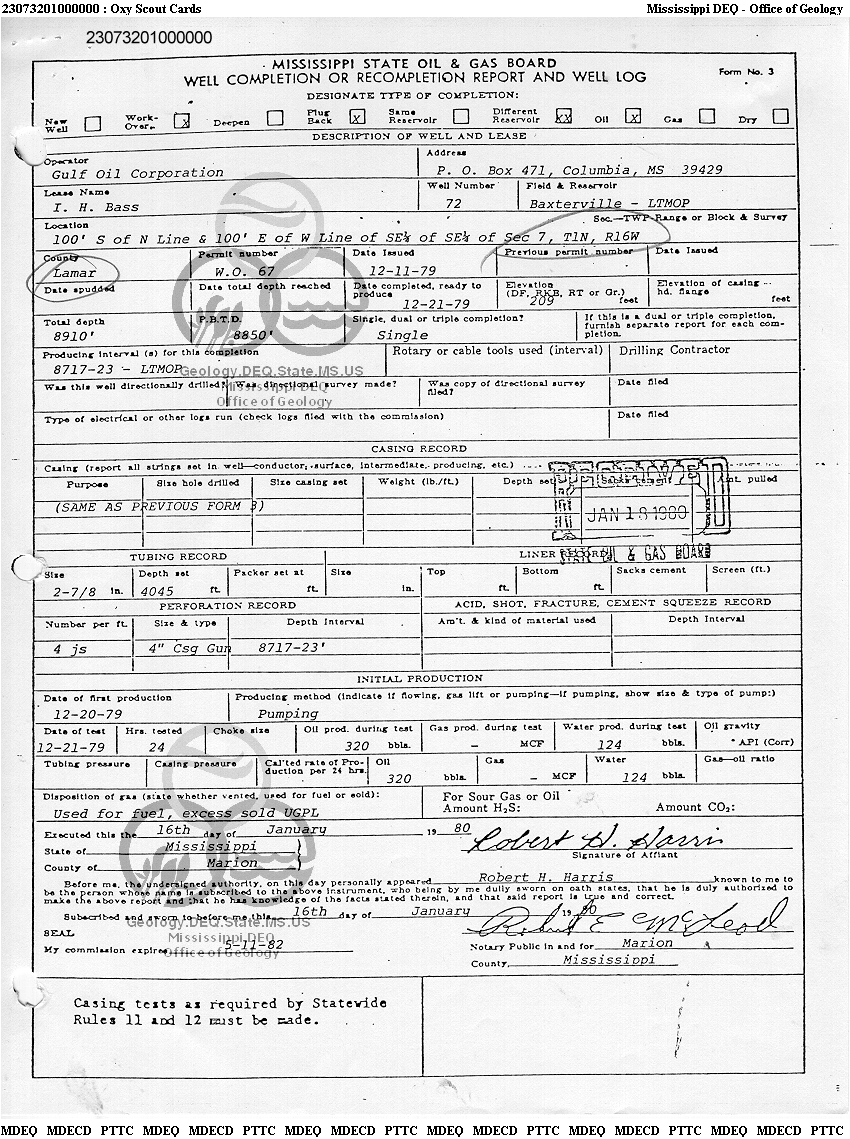 23073201000000 : Oxy Scout Cards Mississippi DEQ - Office of Geology
23073201000000
MISSISSIPPI STATE OIL & GAS BOARD
WELL COMPLETION OR RECOMPLETION REPORT AND WELL LOG Form No. 3
DESIGNATE TYPE OF COMPLETION:
New Well Work-Over X Deepen Plug Back X Same Reservoir Different Reservoir XX Oil X Gas Dry
DESCRIPTION OF WELL AND LEASE
Operator Address
Gulf Oil Corporation P. O. Box 471, Columbia, MS 39429
Lease Name Well Number Field & Reservoir
I. H. Bass 72 Baxterville - LTMOP
Location Sec.-TWP-Range or Block & Survey
100' S of N Line & 100' E of W Line of SE¼ of SE¼ of Sec 7, T1N, R16W
County Permit number Date Issued Previous permit number Date Issued
Lamar W.O. 67 12-11-79
Date spudded Date total depth reached Date completed, ready to produce Elevation (DF, RKB, RT or Gr.) Elevation of casing hd. flange
12-21-79 209 feet feet
Total depth P.B.T.D. Single, dual or triple completion? If this is a dual or triple completion, furnish separate report for each completion.
8910' 8850' Single
Producing interval (s) for this completion Rotary or cable tools used (interval) Drilling Contractor
8717-23 - LTMOP
Geology.DEQ.State.MS.US
Was this well directionally drilled? Was directional survey made? Was copy of directional survey filed? Date filed
Mississippi.DEQ
Office of Geology
Type of electrical or other logs run (check logs filed with the commission) Date filed
CASING RECORD
Casing (report all strings set in well—conductor, surface, intermediate, producing, etc.)
Purpose Size hole drilled Size casing set Weight (lb./ft.) Depth set Sacks cement Amt. pulled
(SAME AS PREVIOUS FORM 3)
JAN 18 1980
OIL & GAS BOARD
TUBING RECORD LINER RECORD
Size Depth set Packer set at Size Top Bottom Sacks cement Screen (ft.)
2-7/8 in. 4045 ft. ft. in. ft. ft.
PERFORATION RECORD ACID, SHOT, FRACTURE, CEMENT SQUEEZE RECORD
Number per ft. Size & type Depth Interval Am't. & kind of material used Depth Interval
4 js 4" Csg Gun 8717-23'
INITIAL PRODUCTION
Date of first production Producing method (indicate if flowing, gas lift or pumping—if pumping, show size & type of pump:)
12-20-79 Pumping
Date of test Hrs. tested Choke size Oil prod. during test Gas prod. during test Water prod. during test Oil gravity
12-21-79 24 320 bbls. - MCF 124 bbls. ° API (Corr)
Tubing pressure Casing pressure Cal'ted rate of Production per 24 hrs. Oil Gas Water Gas—oil ratio
320 bbls. - MCF 124 bbls.
Disposition of gas (state whether vented, used for fuel or sold): For Sour Gas or Oil
Amount H2S: Amount CO2:
Used for fuel, excess sold UGPL
Executed this the 16th day of January 19 80 Robert H. Harris
State of Mississippi } Signature of Affiant
County of Marion }
Before me, the undersigned authority, on this day personally appeared Robert H. Harris known to me to
be the person whose name is subscribed to the above instrument, who being by me dully sworn on oath states, that he is duly authorized to
make the above report and that he has knowledge of the facts stated therein, and that said report is true and correct.
Subscribed and sworn to before me this 16th day of January 19 80
Geology.DEQ.State.MS.US Robert E McLeod
SEAL Mississippi.DEQ
My commission expires 5-11-82 Notary Public in and for Marion
Office of Geology
County, Mississippi
Casing tests as required by Statewide
Rules 11 and 12 must be made.
MDEQ MDECD PTTC MDEQ MDECD PTTC MDEQ MDECD PTTC MDEQ MDECD PTTC MDEQ MDECD PTTC MDEQ MDECD PTTC